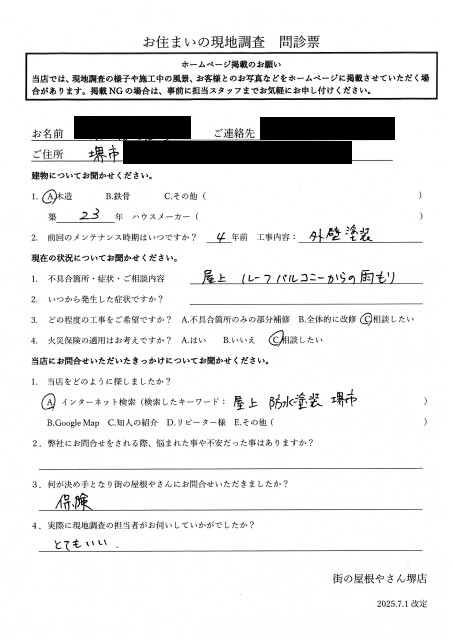 お住まいの現地調査　問診票
ホームページ掲載のお願い
当店では、現地調査の様子や施工中の風景、お客様とのお写真などをホームページに掲載させていただく場
合があります。掲載NGの場合は、事前に担当スタッフまでお気軽にお申し付けください。
お名前　ご連絡先
ご住所　堺市
建物についてお聞かせください。
1. A.木造　B.鉄骨　C.その他（　）
築　23　年　ハウスメーカー（　）
2. 前回のメンテナンス時期はいつですか？　4　年前　工事内容：　外壁塗装
現在の状況についてお聞かせください。
1. 不具合箇所・症状・ご相談内容　屋上　ルーフバルコニーからの雨もり
2. いつから発生した症状ですか？
3. どの程度の工事をご希望ですか？　A.不具合箇所のみの部分補修　B.全体的に改修　C.相談したい
4. 火災保険の適用はお考えですか？　A.はい　B.いいえ　C.相談したい
当店にお問合せいただいたきっかけについてお聞かせください。
1. 当店をどのように探しましたか？
A. インターネット検索（検索したキーワード：　屋上　防水塗装　堺市　）
B.Google Map　C.知人の紹介　D.リピーター様　E.その他（　）
2．弊社にお問合せをされる際、悩まれた事や不安だった事はありますか？
3．何が決め手となり街の屋根やさんにお問合せいただきましたか？
保険
4．実際に現地調査の担当者がお伺いしていかがでしたか？
とてもいい.
街の屋根やさん堺店
2025.7.1 改定